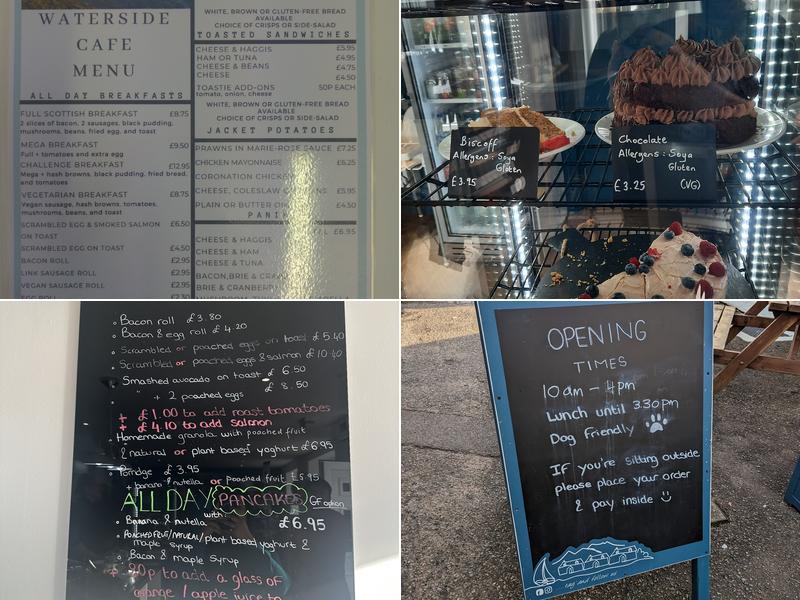 WATERSIDE
CAFE
MENU
ALL DAY BREAKFASTS
FULL SCOTTISH BREAKFAST £8.75
2 slices of bacon, 2 sausages, black pudding,
mushrooms, beans, fried egg, and toast
MEGA BREAKFAST £9.50
Full + tomatoes and extra egg
CHALLENGE BREAKFAST £12.95
Mega + hash browns, black pudding, fried bread,
and tomatoes
VEGETARIAN BREAKFAST £8.75
Vegan sausage, hash browns, tomatoes,
mushrooms, beans, and toast
SCRAMBLED EGG & SMOKED SALMON £6.50
ON TOAST
SCRAMBLED EGG ON TOAST £4.50
BACON ROLL £2.95
LINK SAUSAGE ROLL £2.95
VEGAN SAUSAGE ROLL £2.95
EGG ROLL
WHITE, BROWN OR GLUTEN-FREE BREAD
AVAILABLE
CHOICE OF CRISPS OR SIDE-SALAD
TOASTED SANDWICHES
CHEESE & HAGGIS £5.95
HAM OR TUNA £4.95
CHEESE & BEANS £4.75
CHEESE £4.50
TOASTIE ADD-ONS 50P EACH
tomato, onion, cheese
WHITE, BROWN OR GLUTEN-FREE BREAD
AVAILABLE
CHOICE OF CRISPS OR SIDE-SALAD
JACKET POTATOES
PRAWNS IN MARIE-ROSE SAUCE £7.25
CHICKEN MAYONNAISE £6.25
CORONATION
CHEESE, COLESLAW £5.95
PLAIN OR BUTTER £4.50
£6.95
CHEESE & HAGGIS
CHEESE & HAM
CHEESE & TUNA
BACON, BRIE &
BRIE &
Biscoff
Allergens: Soya
Gluten
£3.95
Chocolate
Allergens: Soya
Gluten
£3.25 (VG)
Bacon roll £3.80
Bacon & egg roll £4.20
Scrambled or poached eggs on toast £5.40
Scrambled or poached eggs & salmon £10.40
Smashed avocado on toast £6.50
" + 2 poached eggs £8.50
+ £1.00 to add roast tomatoes
+ £4.10 to add salmon
Homemade granola with poached fruit
& natural or plant based yoghurt £6.95
Porridge £3.95
+ banana & nutella or poached fruit £5.95
ALL DAY PANCAKES GF option
with
Banana & nutella £6.95
Poached fruit/natural/plant based yoghurt &
maple syrup
Bacon & maple syrup
+ 20p to add a glass of
orange / apple juice to
OPENING
TIMES
10am - 4pm
Lunch until 3.30pm
Dog Friendly
IF you're sitting outside
please place your order
& pay inside
tag and follow us